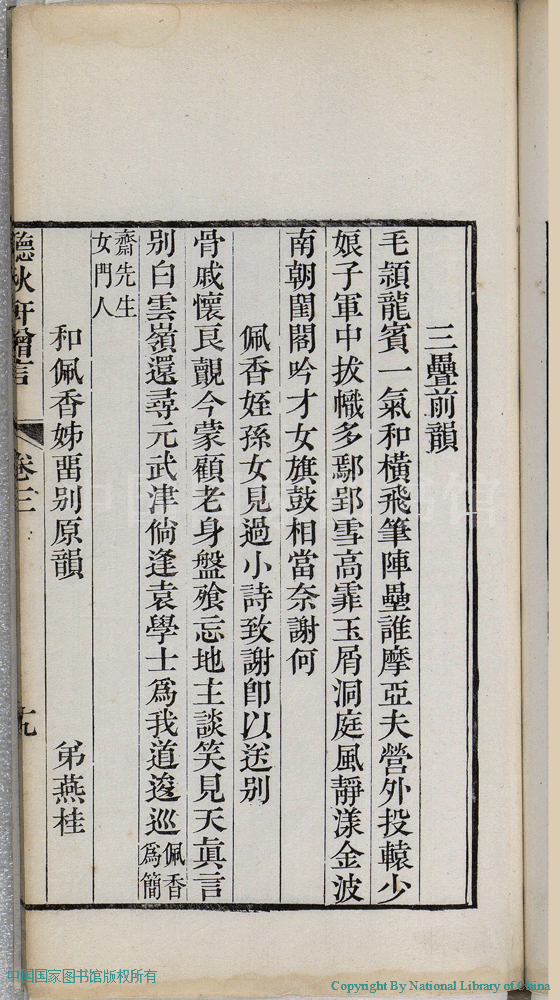 三疊前韻
毛頴龍賓一氣和橫飛筆陣壘誰摩亞夫營外投轅少
娘子軍中拔幟多鄢郢雪高霏玉屑洞庭風靜漾金波
南朝閨閣吟才女旗鼓相當奈謝何
佩香姪孫女見過小詩致謝卽以送别
骨戚懷艮覿今蒙顧老身盤飱忘地主談笑見天眞言
别白雲嶺還尋元武津倘逢袁學士爲我道逡巡佩香爲簡
齋先生女門人
和佩香姊畱别原韻 弟燕桂
聽秋軒贈言 卷三 十九
中国国家图书馆版权所有
Copyright By National Library of China